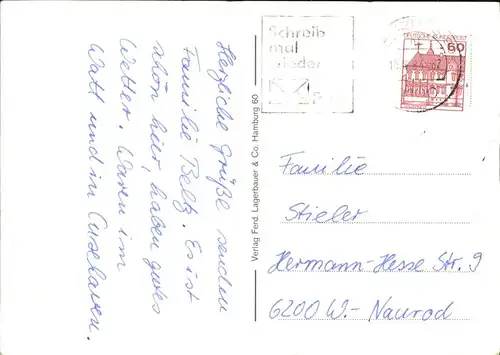 Herzliche Grüße senden
Familie Beltz. Es ist
schön hier, haben gutes
Wetter. Waren im
Watt und in Cuxhaven.
Verlag Ferd. Lagerbauer & Co. Hamburg 60
Schreib
mal
wieder
DEUTSCHE BUNDESPOST
60
Familie
Stieler
Hermann-Hesse Str. 9
6200 W.- Naurod